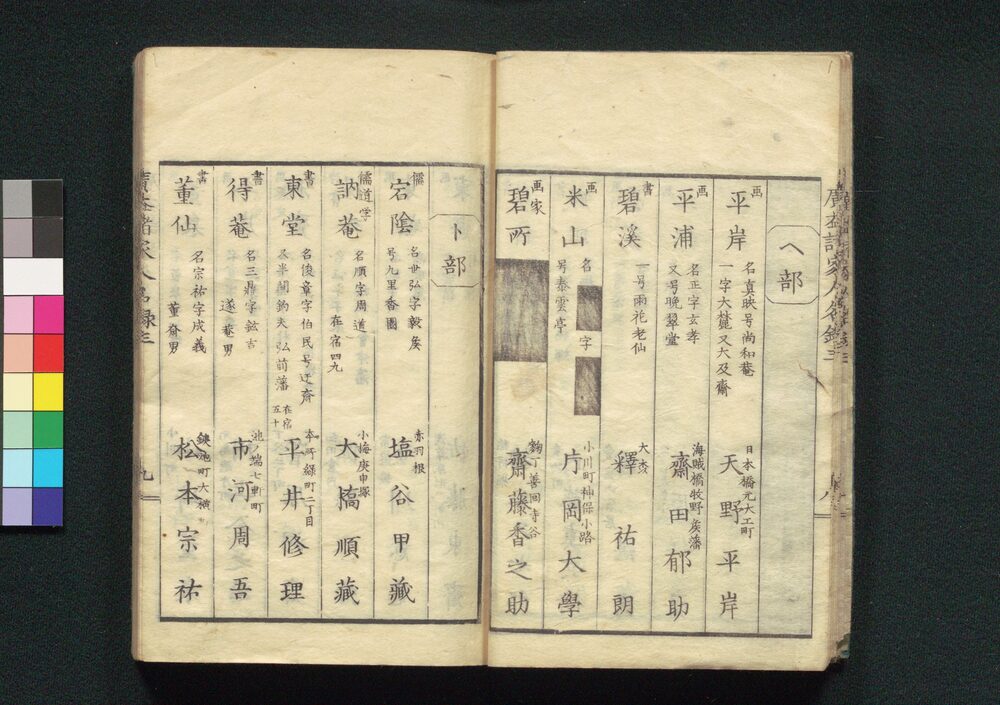 ヘ部
画 平岸 名真映号尚和菴 一字大麓又大及齋 日本橋元大工町 天野平岸
画 平浦 名正字玄孝 又号晩翠堂 海賊橋牧野矦藩 齋田郁助
書 碧溪 一号雨花老仙 釋祐朗
画 米山 名 字 号泰雲亭 小川町神保小路 片岡大學
画家 碧所 齋藤香之助
ト部
儒 宕陰 名世弘字毅矦 号九里香園 赤羽根 塩谷甲藏
儒道学 訥菴 名順字周道 在宿四九 小梅庚申塚 大橋順藏
書 東堂 名俊章字伯民号迂斎 弘前藩 在宿五十 本所緑町二丁目 平井修理
書 得菴 名三鼎字鉉吉 遂菴男 池ノ端七軒町 市河周之吾
書 董仙 名宗祐字成義 董齋男 松本宗祐
九